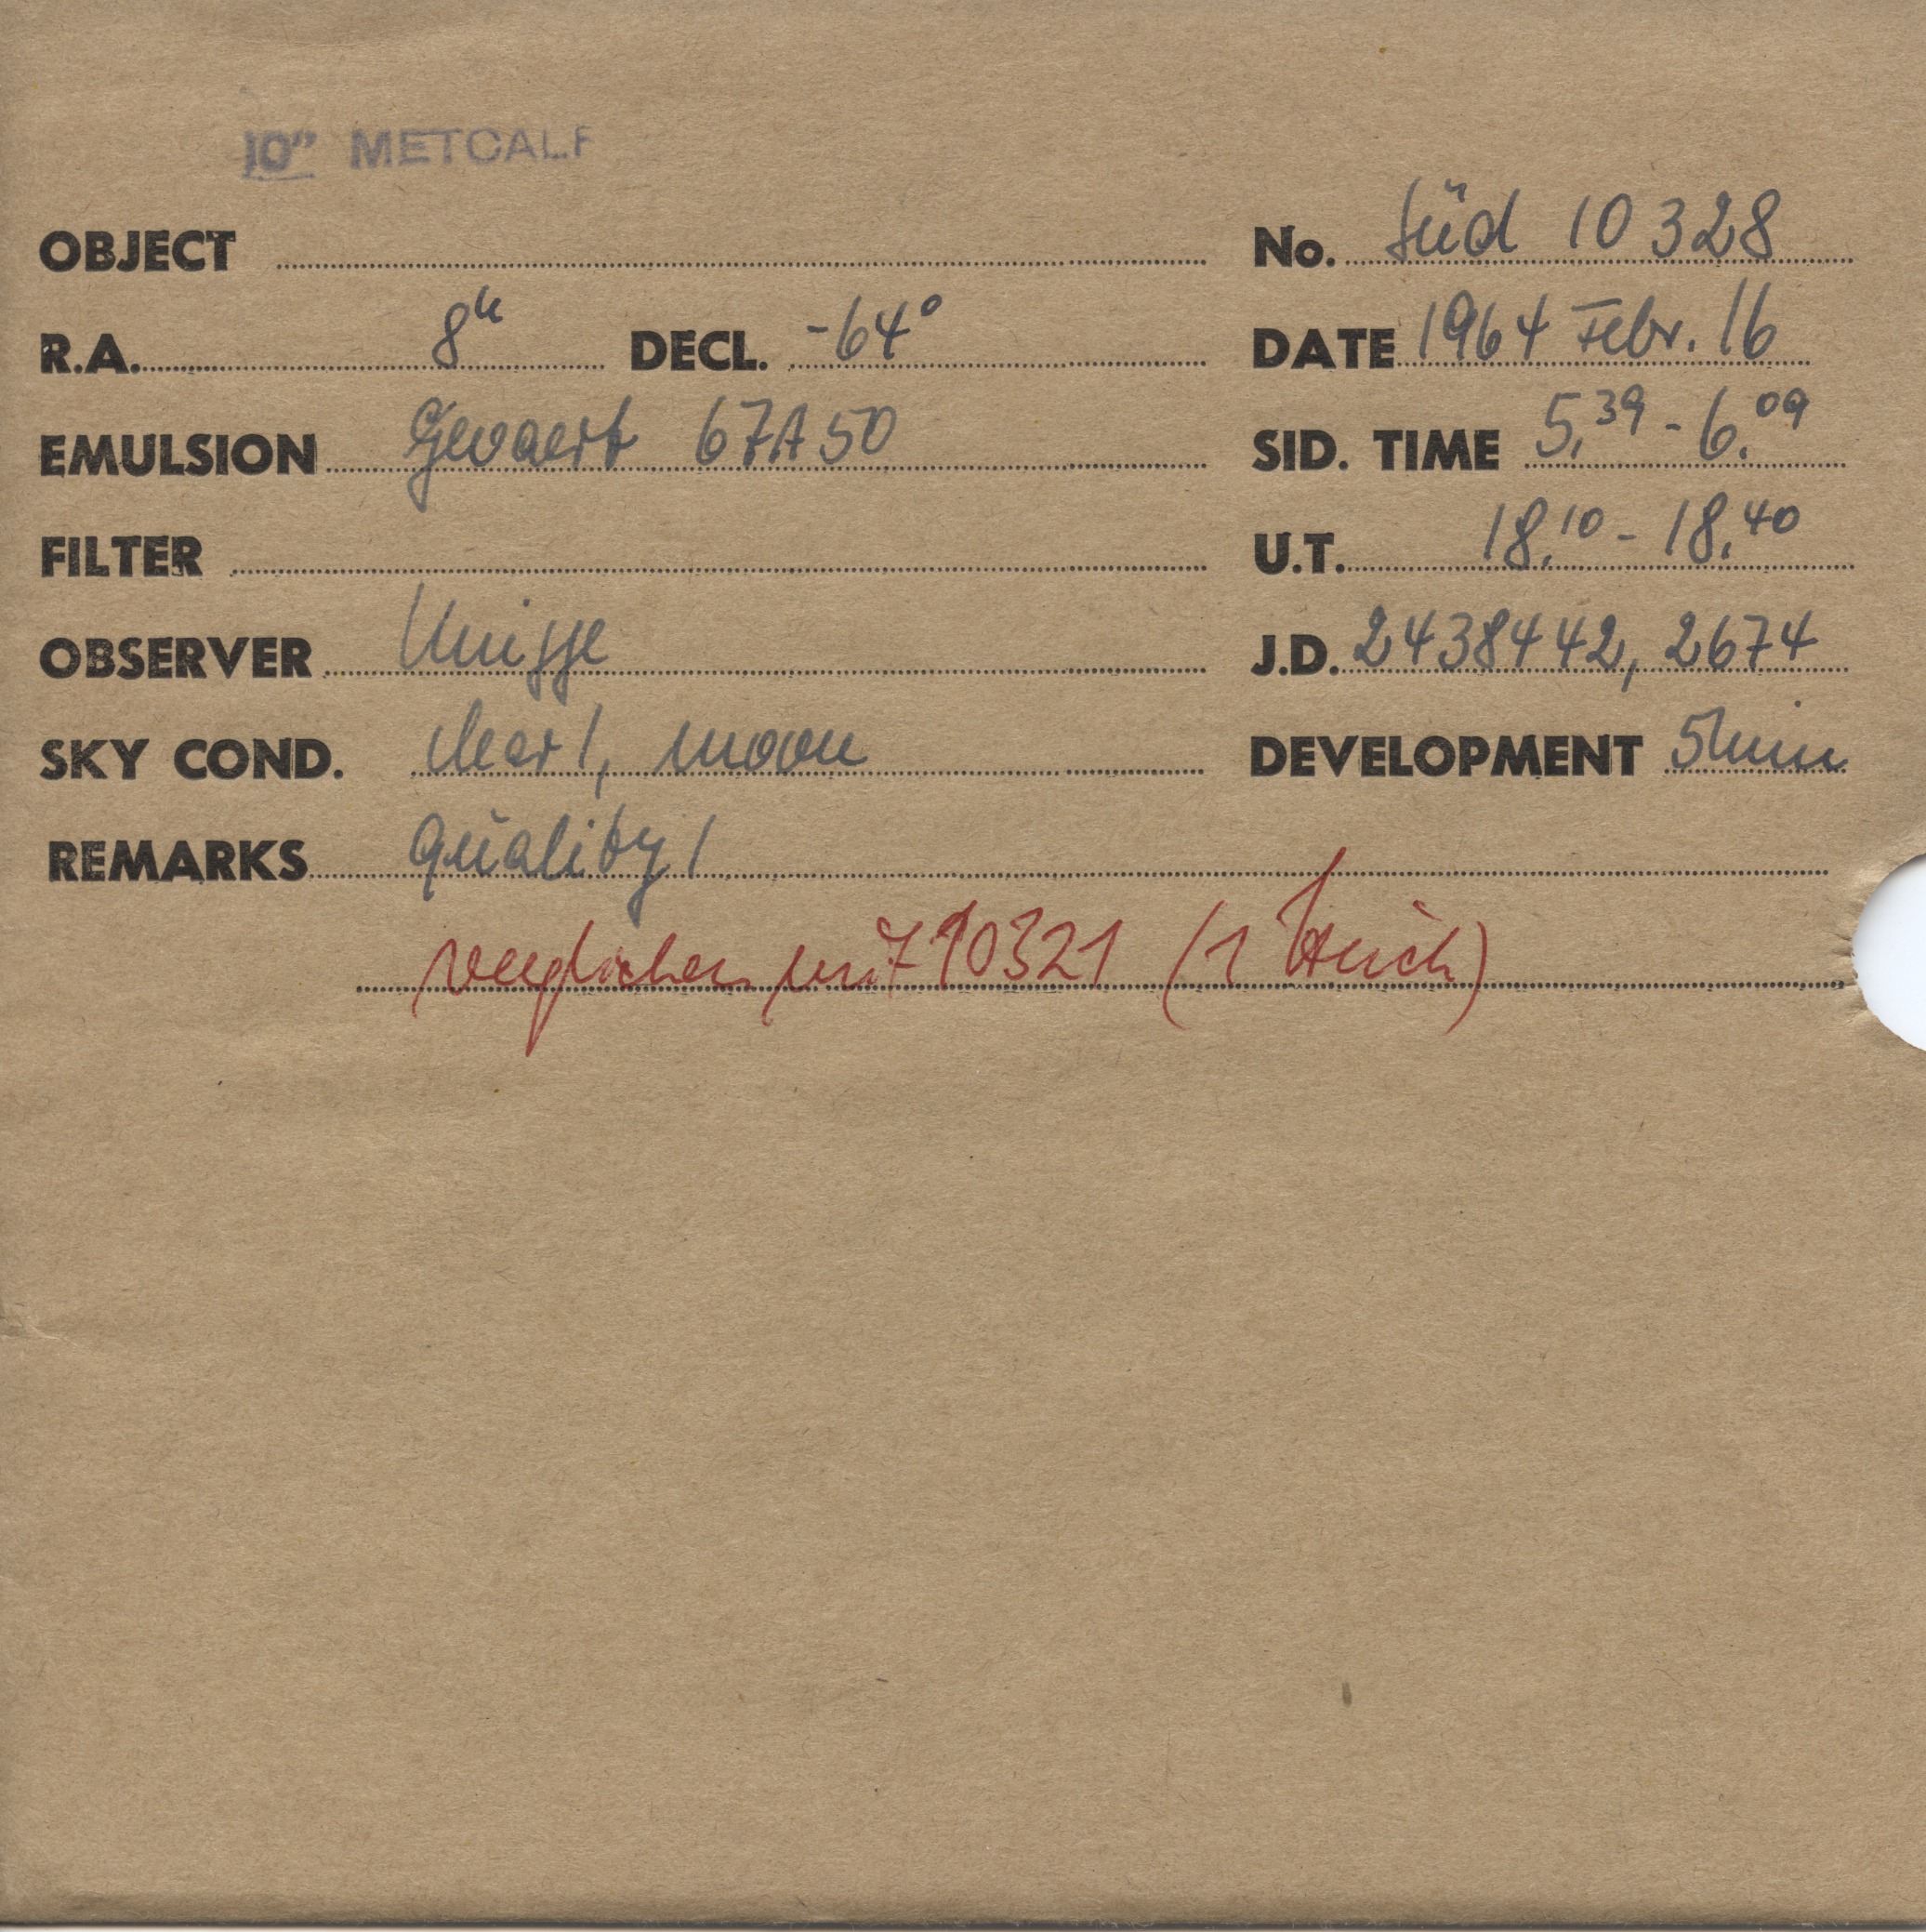 10" METCALF
OBJECT No. Süd 10328
R.A. 8h DECL. -64° DATE 1964 Febr. 16
EMULSION Gevaert 67A50 SID. TIME 5.39 - 6.09
FILTER U.T. 18.10 - 18.40
OBSERVER J.D. 2438442,2674
SKY COND. clear 1, moon DEVELOPMENT 5 min
REMARKS Quality 1
verglichen mit 10321 (1 Strich)